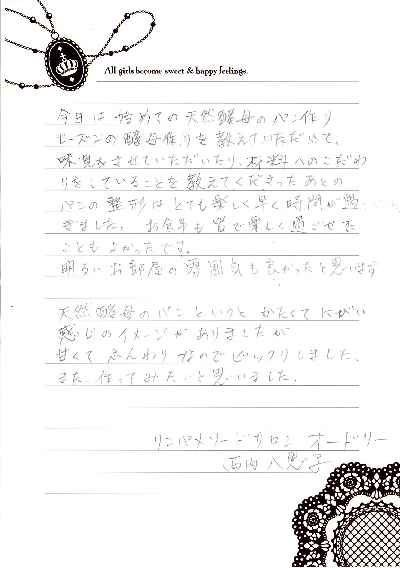 All girls become sweet & happy feelings.
今日は 初めての 天然酵母の パン作り
レーズンの酵母作りを教えていただいて、
味見をさせていただいたり、材料へのこだわ
りをしていることを教えてくださったあとの
パンの整形はとても楽しく早く時間が過
ぎました。お食事も皆で楽しく過ごせた
こともよかったです。
明るいお部屋の雰囲気も良かったと思います
天然酵母のパンというと かたくて にがい
感じのイメージがありましたが
甘くて ふんわり なのでビックリしました。
また、作ってみたいと思いました。
リンパメソードサロン オードリー
西内 八恵子